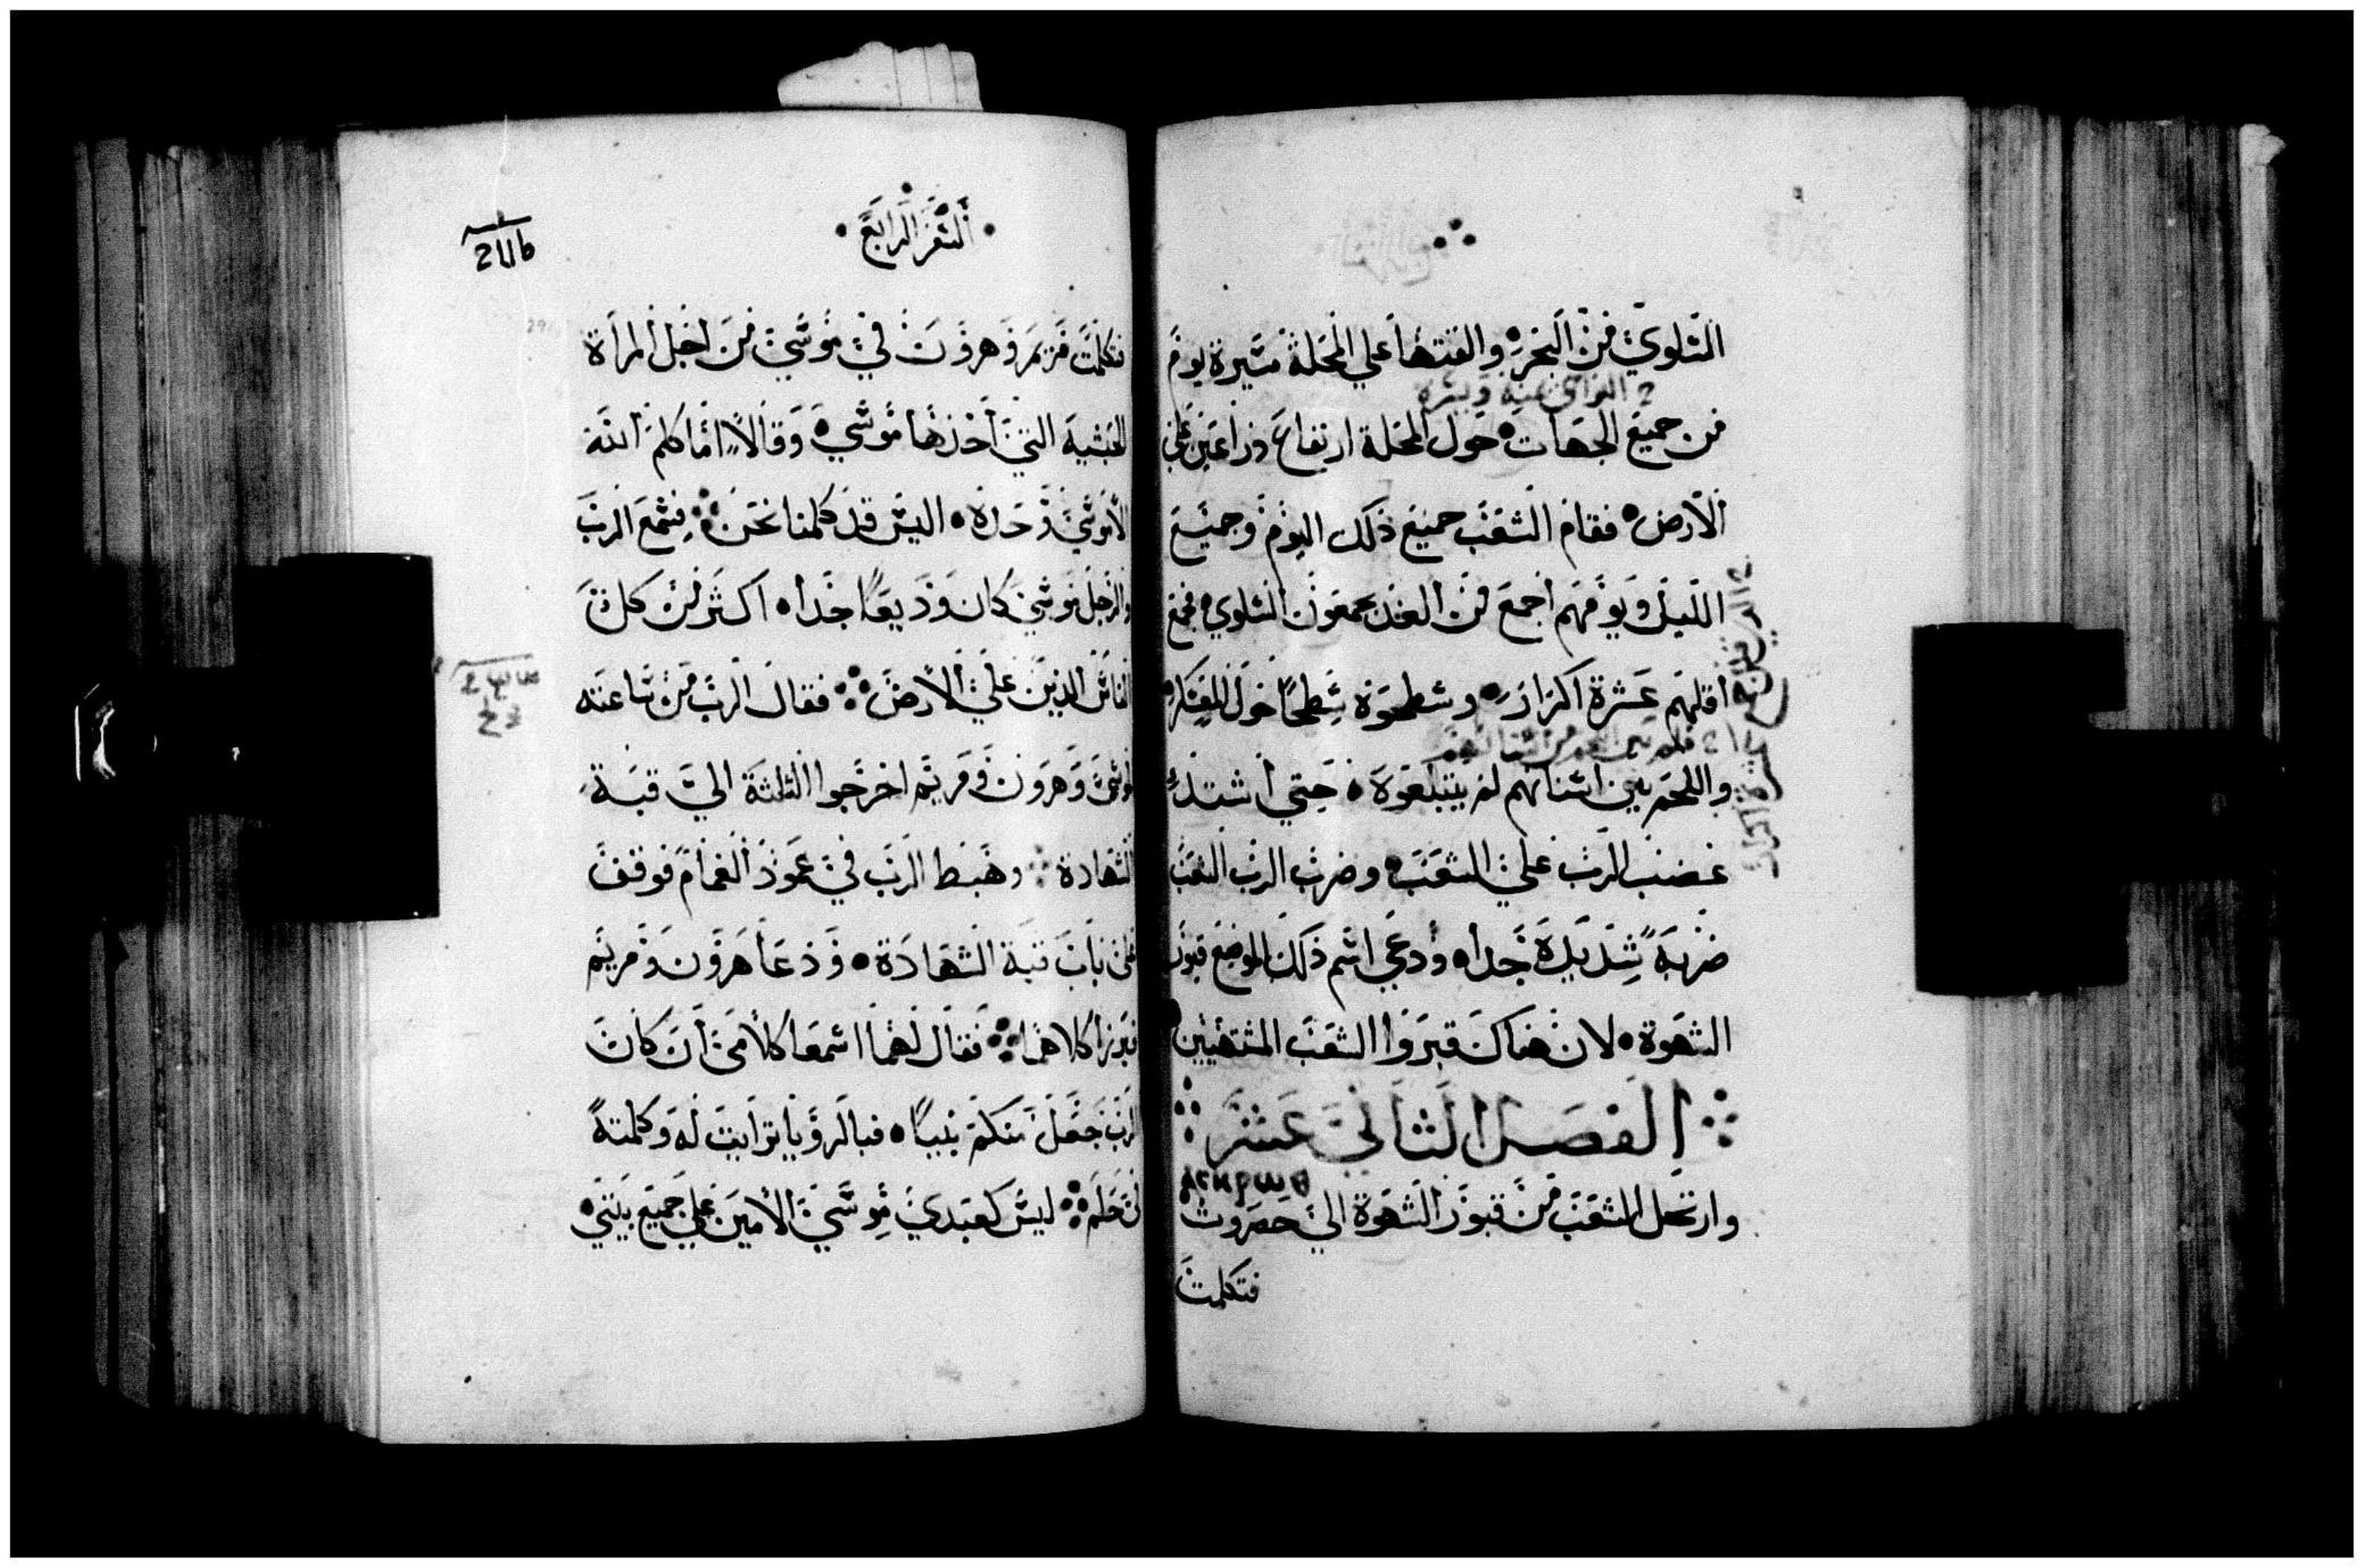 السلوي من البحر والقتها علي المحلة مسيرة يوم
من جميع الجهات حول المحلة ارتفاع ذراعين علي
الارض فقام الشعب جميع ذلك اليوم وجميع
الليل ويومهم اجمع من الغد يجمعون السلوي فجمع
اقلهم عشرة اكرار وسطحوه سطحا حول المعسكر
واللحم بين اسنانهم لم يبتلعوه حتي اشتد
غضب الرب علي الشعب وضرب الرب الشعب
ضربة شديدة جدا ودعي اسم ذلك الموضع قبور
الشهوة لان هناك قبروا الشعب المشتهيين
الفصل الثاني عشر
وارتحل الشعب من قبور الشهوة الي حصروت
فتكلمت
السفر الرابع
فتكلمت مريم وهرون في موسي من اجل المراة
الحبشية التي اخذها موسي وقالا اما كلم الله
الا موسي وحده اليس قد كلمنا نحن فسمع الرب
والرجل موسي كان وديعا جدا اكثر من كل
الناس الذين علي الارض فقال الرب من ساعته
لموسي وهرون ومريم اخرجوا الثلثة الي قبة
الشهادة وهبط الرب في عمود الغمام فوقف
علي باب قبة الشهادة ودعا هرون ومريم
فبرزا كلاهما فقال لهما اسمعا كلامي ان كان
الرب جعل منكم نبيا فبالرويا ترايت له وكلمته
في حلم ليس كعبدي موسي الامين علي جميع بيتي